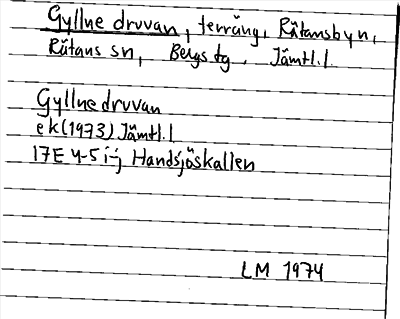 Gyllne druvan, terräng, Rätansbyn,
Rätans sn, Bergs tg. Jämtl. l
Gyllne druvan
ek (1973) Jämtl. l
17E 4-5 i-j Handsjöskallen
LM 1974